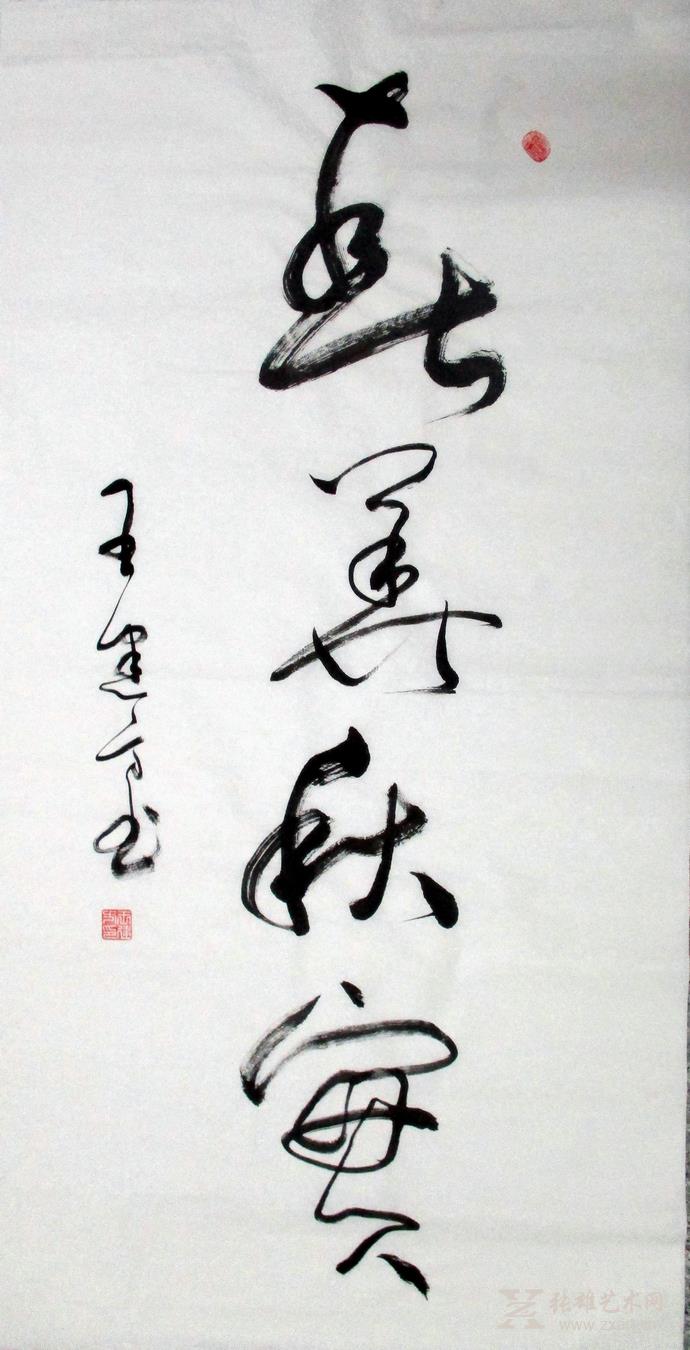 春華秋實
王建方书
张雄艺术网
www.zxart.cn